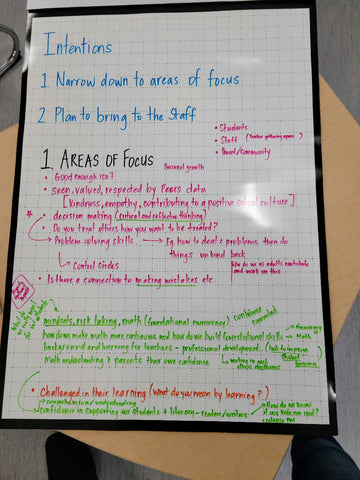 Intentions
1. Narrow down to areas of focus
2. Plan to bring to the Staff
• Students
• Staff
• Parent/community
1. AREAS OF FOCUS
Personal growth
• Good enough isn't
• Seen, valued, respected by Peers data
[kindness, empathy, contributing to a positive school culture]
* • decision making (critical and reflective thinking)
• Do you treat others how you want to be treated?
• Problem solving skills. → Eg how to deal c problems then do
things on bend back
→ Control Circles
How do we as adults contribute
and work on this
• Is there a connection to making mistakes etc.
mindsets, risk taking, math (foundational numeracy)
confidence
connected
hands on, make math more continuous and how do we build foundational skills → Math
→ Numeracy
background and learning for teachers - professional development.
learning
Math understanding c parents their own confidence
→ working in each
others classrooms
• Challenged in their learning (What do you mean by learning?)
understanding
confidence in supporting our students c literacy - readers/writers
→ How do we know
if our kids can read?